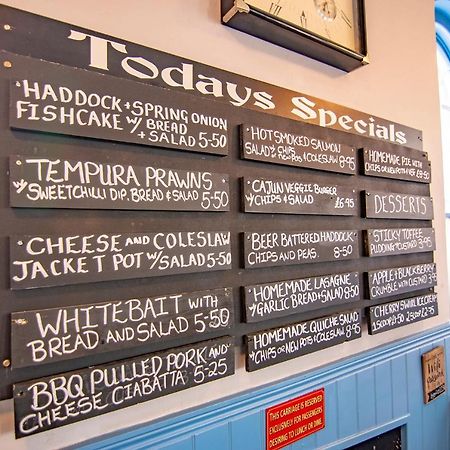 Todays Specials
HADDOCK + SPRING ONION
FISHCAKE W/ BREAD
+ SALAD 5-50
TEMPURA PRAWNS
W/ SWEETCHILLI DIP, BREAD + SALAD 5-50
CHEESE AND COLESLAW
JACKET POT W/ SALAD 5-50
WHITEBAIT WITH
BREAD AND SALAD 5-50
BBQ PULLED PORK AND
CHEESE CIABATTA 5-25
HOT SMOKED SALMON
SALAD W/ CHIPS
OR NEW POTS + COLESLAW 8-95
CAJUN VEGGIE BURGER
W/ CHIPS & SALAD £6.95
BEER BATTERED HADDOCK
CHIPS AND PEAS. 8-50
HOMEMADE LASAGNE
W/ GARLIC BREAD + SALAD 8-50
HOMEMADE QUICHE SALAD
W/ CHIPS OR NEW POTS + COLESLAW 8.95
HOMEMADE PIE WITH
CHIPS OR NEW POTS + VEG
DESSERTS
STICKY TOFFEE
PUDDING W/ CUSTARD 3-95
APPLE + BLACKBERRY
CRUMBLE WITH CUSTARD 3-95
CHERRY SWIRL ICE CREAM
1 SCOOP 2-50
THIS CARRIAGE IS RESERVED
EXCLUSIVELY FOR PASSENGERS
DESIRING TO LUNCH OR DINE.